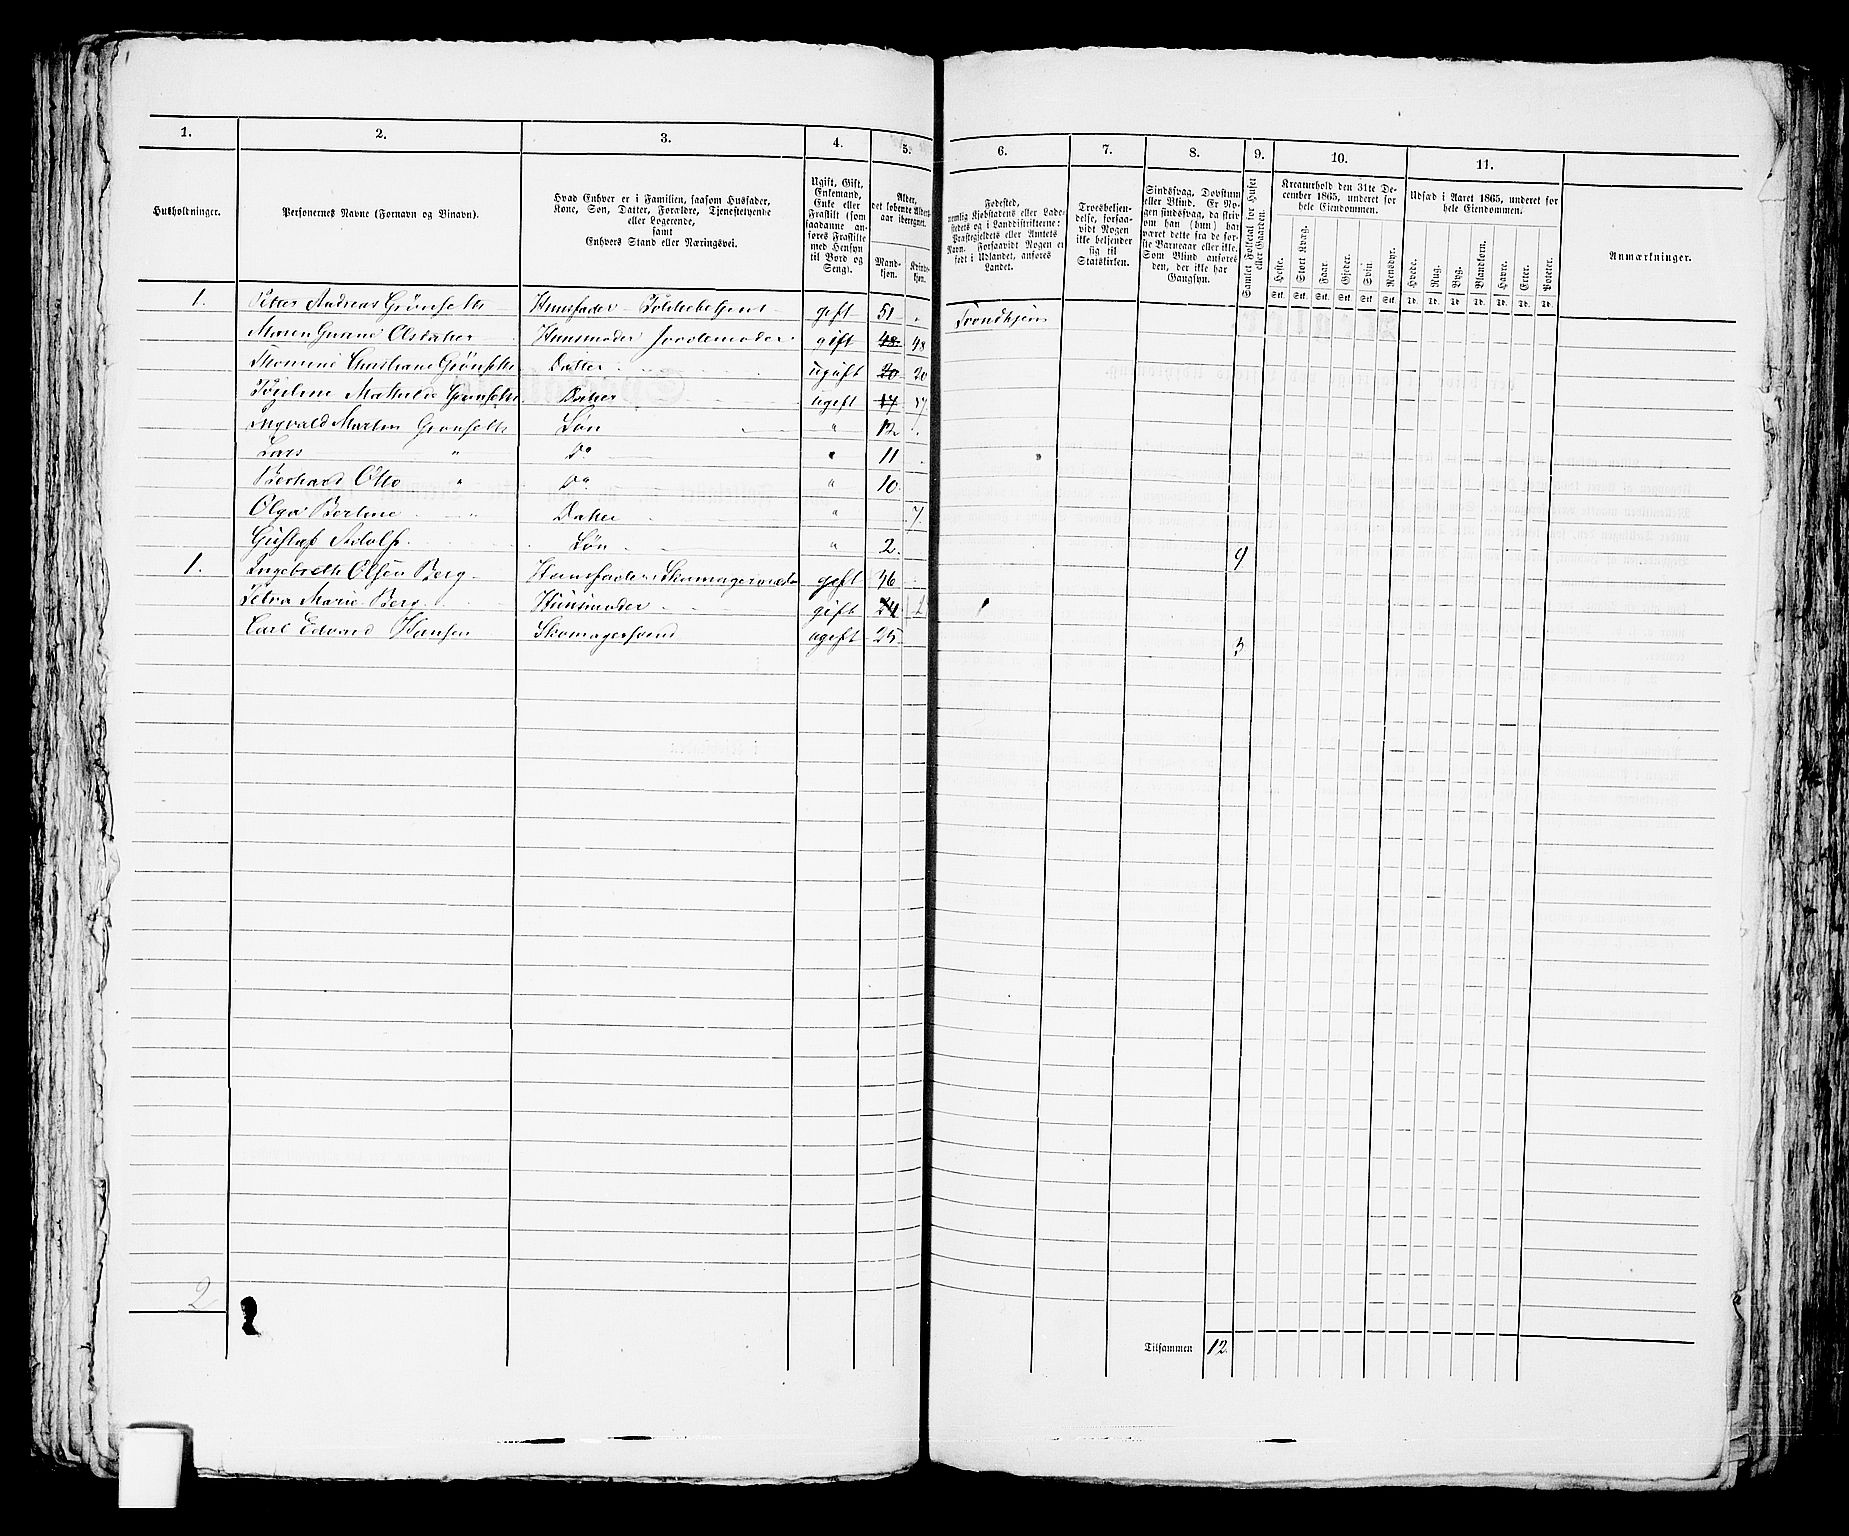 1. 2. 3. 4. 5. 6. 7. 8. 9. 10. 11.
Husholdninger.
Personernes Navne (Fornavn og Vinavn).
Hvad Enhver er i Familien, saasom Husfader,
Kone, Søn, Datter, Forældre, Tjenestetyende
eller Logerende,
samt
Enhvers Stand eller Næringsvei.
Ugift, Gift,
Enkemand,
Enke eller
Fraskilt (som
saadanne an-
føres Fraskilte
med Hensyn
til Bord og
Seng).
Alder,
det løbende Alders-
aar iberegnet.
Mand-
kjøn.
Kvinde-
kjøn.
Fødested,
nemlig Kjøbstadens eller Lade-
stedets og i Landdistrikterne:
Præstegjeldets eller Amtets
Navn. Forsaavidt Nogen er
født i Udlandet, anføres
Landet.
Troesbekjen-
delse, forsaa-
vidt Nogen
ikke bekjender
sig til
Statskirken.
Sindssvag, Døvstum
eller Blind. Er No-
gen sindssvag, da skriv
om han (hun) har
været dette fra de før-
ste Barneaar eller ikke.
Som Blind anføres
den, der ikke har
Gangsyn.
Samlet Folketal for Huset
eller Gaarden.
Kreaturhold den 31te De-
cember 1865, underet for
hele Eiendommen.
Heste. Stort Kvæg. Faar. Gjeder. Svin. Rensdyr.
Stk. Stk. Stk. Stk. Stk. Stk.
Udsæd i Aaret 1865, underet for
hele Eiendommen.
Hvede. Rug. Byg. Blandkorn. Havre. Erter. Poteter.
Td. Td. Td. Td. Td. Td. Td.
Anmærkninger.
1. Peter Andreas Grønseth Huusfader Toldbebetjent gift 51 Trondhjem
Maren Olsdatter Huusmoder Jordemoder gift 48 48
Thomine Christiane Grønseth Datter ugift 20 20
Mathilde Grønseth Datter ugift 17 17
Ingvald Martin Grønseth Søn " 12
Lars " Do " 11
Berhard Otto " Do " 10
Olga Bertine " Datter " 7
Gustaf Adolf Søn " 2 9
1. Ingebreth Olsen Berg Huusfader gift 36
Petra Marie Berg Huusmoder gift 24
Carl Edvard Hansen Skomagersvend ugift 25 3
2
Tilsammen 12